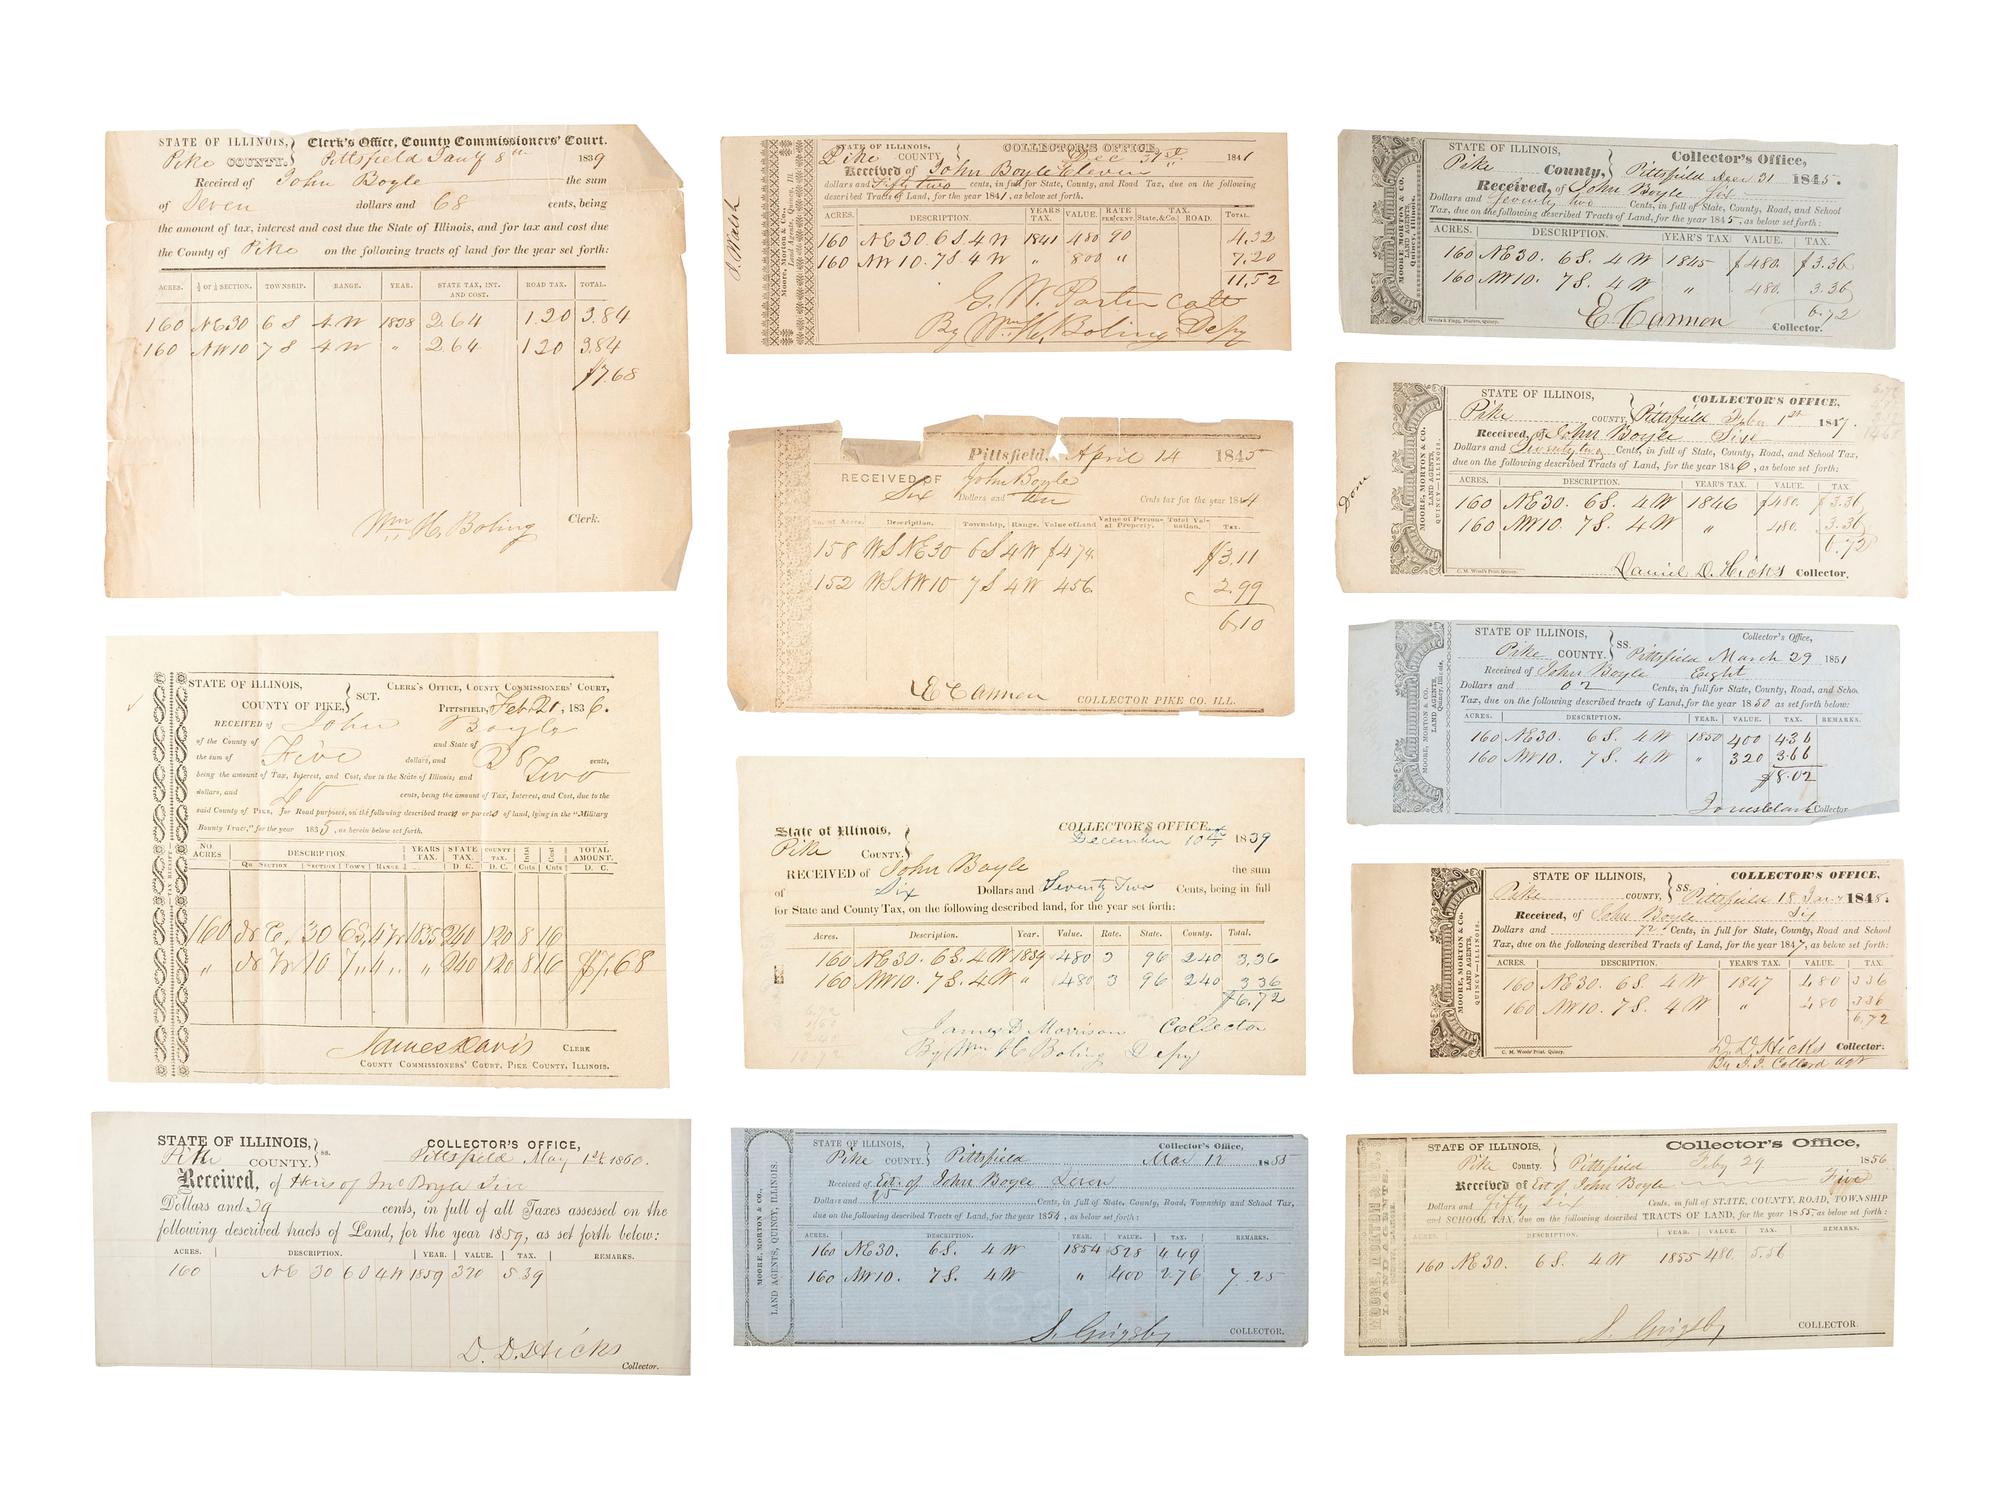 STATE OF ILLINOIS, Clerk's Office, County Commissioners' Court.
Pike COUNTY. Pittsfield Jany 8th 1839
Received of John Boyle the sum
of Seven dollars and 68 cents, being
the amount of tax, interest and cost due the State of Illinois, and for tax and cost due
the County of Pike on the following tracts of land for the year set forth:
ACRES. ¼ of ¼ SECTION. TOWNSHIP. RANGE. YEAR. STATE TAX, INT. AND COST. ROAD TAX. TOTAL.
160 NE 30 6 S 4 W 1838 2.64 1.20 3.84
160 NW 10 7 S 4 W " 2.64 1.20 3.84
$7.68
Wm H. Boling Clerk.
STATE OF ILLINOIS, COUNTY OF PIKE, SCT. CLERK'S OFFICE, COUNTY COMMISSIONERS' COURT,
PITTSFIELD, Feb 21, 1836.
RECEIVED of John Boyle
of the County of and State of
the sum of Five dollars, and 28 cents,
being the amount of Tax, Interest, and Cost, due to the State of Illinois; and Two
dollars, and 40 cents, being the amount of Tax, Interest, and Cost, due to the
said County of PIKE, for Road purposes, on the following described tract or parcels of land, lying in the "Military
Bounty Tract," for the year 1835, as herein below set forth.
NO. ACRES DESCRIPTION. YEARS TAX. STATE TAX. COUNTY TAX. Intst Cost TOTAL AMOUNT.
Qr SECTION SECTION TOWN RANGE D. C. D. C. Cnts Cnts D. C.
160 30 6 S, 4 W 1835 240 120 8 16
" 10 7 " 4 " " 240 120 8 16 $7.68
James Davis CLERK
COUNTY COMMISSIONERS' COURT, PIKE COUNTY, ILLINOIS.
STATE OF ILLINOIS, Pike COUNTY. ss. COLLECTOR'S OFFICE,
Pittsfield May 1st 1860.
Received, of Heirs of Jno Boyle Five
Dollars and 39 cents, in full of all Taxes assessed on the
following described tracts of Land, for the year 1859, as set forth below:
ACRES. DESCRIPTION. YEAR. VALUE. TAX. REMARKS.
160 NE 30 6 S 4 W 1859 320 5 39
D. D. Hicks
Collector.
J. Walsh
MOORE, MORTON & CO.,
Land Agents, Quincy, Ill.
STATE OF ILLINOIS, Pike COUNTY COLLECTOR'S OFFICE,
Dec 31st 1841
Received of John Boyle Eleven
dollars and Fifty two cents, in full for State, County, and Road Tax, due on the following
described Tracts of Land, for the year 1841, as below set forth.
ACRES. DESCRIPTION. YEAR'S TAX. VALUE. RATE PER CENT. TAX. State,&Co. ROAD. TOTAL.
160 NE 30. 6 S 4 W 1841 480 90 4,32
160 NW 10. 7 S 4 W " 800 " 7,20
11,52
G. W. Porter Coll
By Wm H. Boling Depy
Pittsfield, April 14 1845
RECEIVED OF John Boyle
Six Dollars and ten Cents tax for the year 1844
No. of Acres. Description. Township, Range. Value of Land Value of Personal Property. Total Valuation. TAX.
158 WS NE 30 6 S 4 W $474 $3.11
152 WS NW 10 7 S 4 W 456 2.99
6.10
E Cannon COLLECTOR PIKE CO. ILL.
State of Illinois, Pike County. COLLECTOR'S OFFICE,
December 10th 1839
RECEIVED of John Boyle the sum
of Six Dollars and Seventy Two Cents, being in full
for State and County Tax, on the following described land, for the year set forth:
Acres. Description. Year. Value. Rate. State. County. Total.
160 NE 30. 6 S. 4 W 1839 480 3 96 240 3,36
160 NW 10. 7 S. 4 W " 480 3 96 240 3 36
$6,72
James D Morrison Collector
By Wm H Boling Depy
MOORE, MORTON & CO.,
LAND AGENTS, QUINCY, ILLINOIS.
STATE OF ILLINOIS, Pike COUNTY. Collector's Office,
Pittsfield Mar 12 1855
Received of Est. of John Boyle Seven
Dollars and 25 Cents, in full of State, County, Road, Township and School Tax,
due on the following described Tracts of Land, for the year 1854, as below set forth:
ACRES. DESCRIPTION. YEAR. VALUE. TAX. REMARKS.
160 NE 30. 6 S. 4 W 1854 528 4 49
160 NW 10. 7 S. 4 W " 400 2 76 7.25
S. Grigsby COLLECTOR.
MOORE MORTON & CO.
LAND AGENTS,
Quincy, Illinois.
STATE OF ILLINOIS, Pike County, Collector's Office,
Pittsfield Decr 31 1845.
Received, of John Boyle Six
Dollars and Seventy two Cents, in full of State, County, Road, and School
Tax, due on the following described Tracts of Land, for the year 1845, as below set forth:
ACRES. DESCRIPTION. YEAR'S TAX. VALUE. TAX.
160 NE 30. 6 S. 4 W 1845 $480. $3.36
160 NW 10. 7 S. 4 W " 480. 3.36
6.72
E. Cannon Collector.
Woods & Flagg, Printers, Quincy.
Done
MOORE, MORTON & CO.
LAND AGENTS
QUINCY—ILLINOIS.
STATE OF ILLINOIS, Pike COUNTY, COLLECTOR'S OFFICE,
Pittsfield Feby 1st 1847.
Received, of John Boyle Six
Dollars and Seventy two Cents, in full of State, County, Road, and School Tax,
due on the following described Tracts of Land, for the year 1846, as below set forth:
ACRES. DESCRIPTION. YEAR'S TAX. VALUE. TAX.
160 NE 30. 6 S. 4 W 1846 $480. $3.36
160 NW 10. 7 S. 4 W " 480. 3.36
6.72
C. M. Wood's Print, Quincy.
Daniel D. Hicks Collector.
MOORE, MORTON & CO.
LAND AGENTS
Quincy, Illinois.
STATE OF ILLINOIS, Pike COUNTY. SS. Collector's Office,
Pittsfield March 29 1851
Received of John Boyle Eight
Dollars and 02 Cents, in full for State, County, Road, and Scho
Tax, due on the following described tracts of Land, for the year 1850 as set forth below:
ACRES. DESCRIPTION. YEAR. VALUE. TAX. REMARKS.
160 NE 30. 6 S. 4 W 1850 400 4 36
160 NW 10. 7 S. 4 W " 320 3.66
$8.02
Collector
MOORE, MORTON & CO.
LAND AGENTS,
QUINCY—ILLINOIS.
STATE OF ILLINOIS, Pike COUNTY, SS. COLLECTOR'S OFFICE,
Pittsfield 18 Jany 1848.
Received, of John Boyle Six
Dollars and 72 Cents, in full of State, County, Road and School
Tax, due on the following described Tracts of Land, for the year 1847, as below set forth:
ACRES. DESCRIPTION. YEAR'S TAX. VALUE. TAX.
160 NE 30. 6 S. 4 W 1847 480 3 36
160 NW 10. 7 S. 4 W " 480 3 36
6,72
C. M. Woods' Print, Quincy.
D. D. Hicks Collector.
By Collard agt
MOORE, MORTON &
LAND AGENTS
STATE OF ILLINOIS, Pike County. Collector's Office,
Pittsfield Feby 29 1856
Received of Est of John Boyle Five
Dollars and fifty six Cents, in full of STATE, COUNTY, ROAD, TOWNSHIP
and SCHOOL TAX, due on the following described TRACTS OF LAND, for the year 1855, as below set forth:
ACRES. DESCRIPTION. YEAR. VALUE. TAX. REMARKS.
160 NE 30. 6 S. 4 W 1855 480. 5.56
S. Grigsby COLLECTOR.